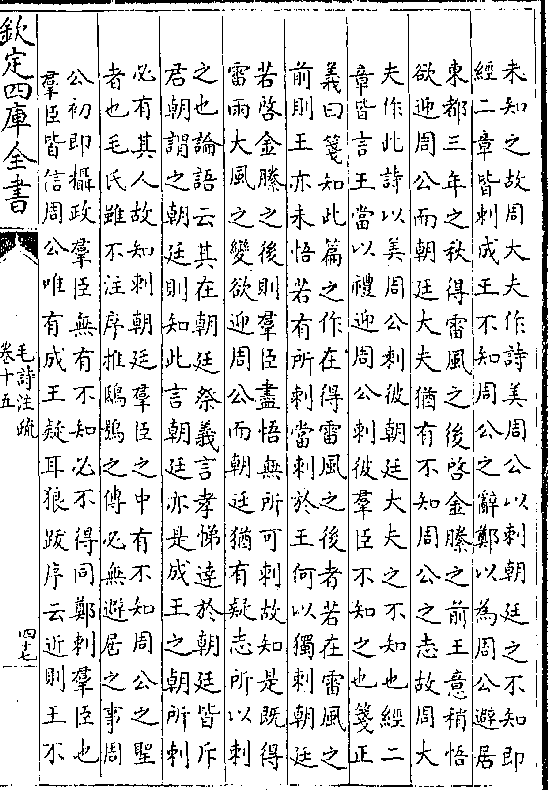 未知之故周大夫作詩美周公以刺朝廷之不知即
經二章皆刺成王不知周公之辭鄭以為周公避居
東都三年之秋得雷風之後啓金縢之前王意稍悟
欲迎周公而朝廷大夫猶有不知周公之志故周大
夫作此詩以美周公刺彼朝廷大夫之不知也經二
章皆言王當以禮迎周公刺彼羣臣不知之也箋正
義曰箋知此篇之作在得雷風之後者若在雷風之
前則王亦未悟若有所刺當刺於王何以獨刺朝廷
若啓金縢之後則羣臣盡悟無所可刺故知是既得
雷雨大風之變欲迎周公而朝廷猶有疑志所以刺
之也論語云其在朝廷祭義言孝悌達於朝廷皆斥
君朝謂之朝廷則知此言朝廷亦是成王之朝所刺
必有其人故知刺朝廷羣臣之中有不知周公之聖
者也毛氏雖不注序推鴟鴞之傳必無避居之事周
公初即攝政羣臣無有不知必不得同鄭刺羣臣也
羣臣皆信周公唯有成王疑耳狼跋序云近則王不
欽定四庫全書
毛詩注疏
卷十五
四十七